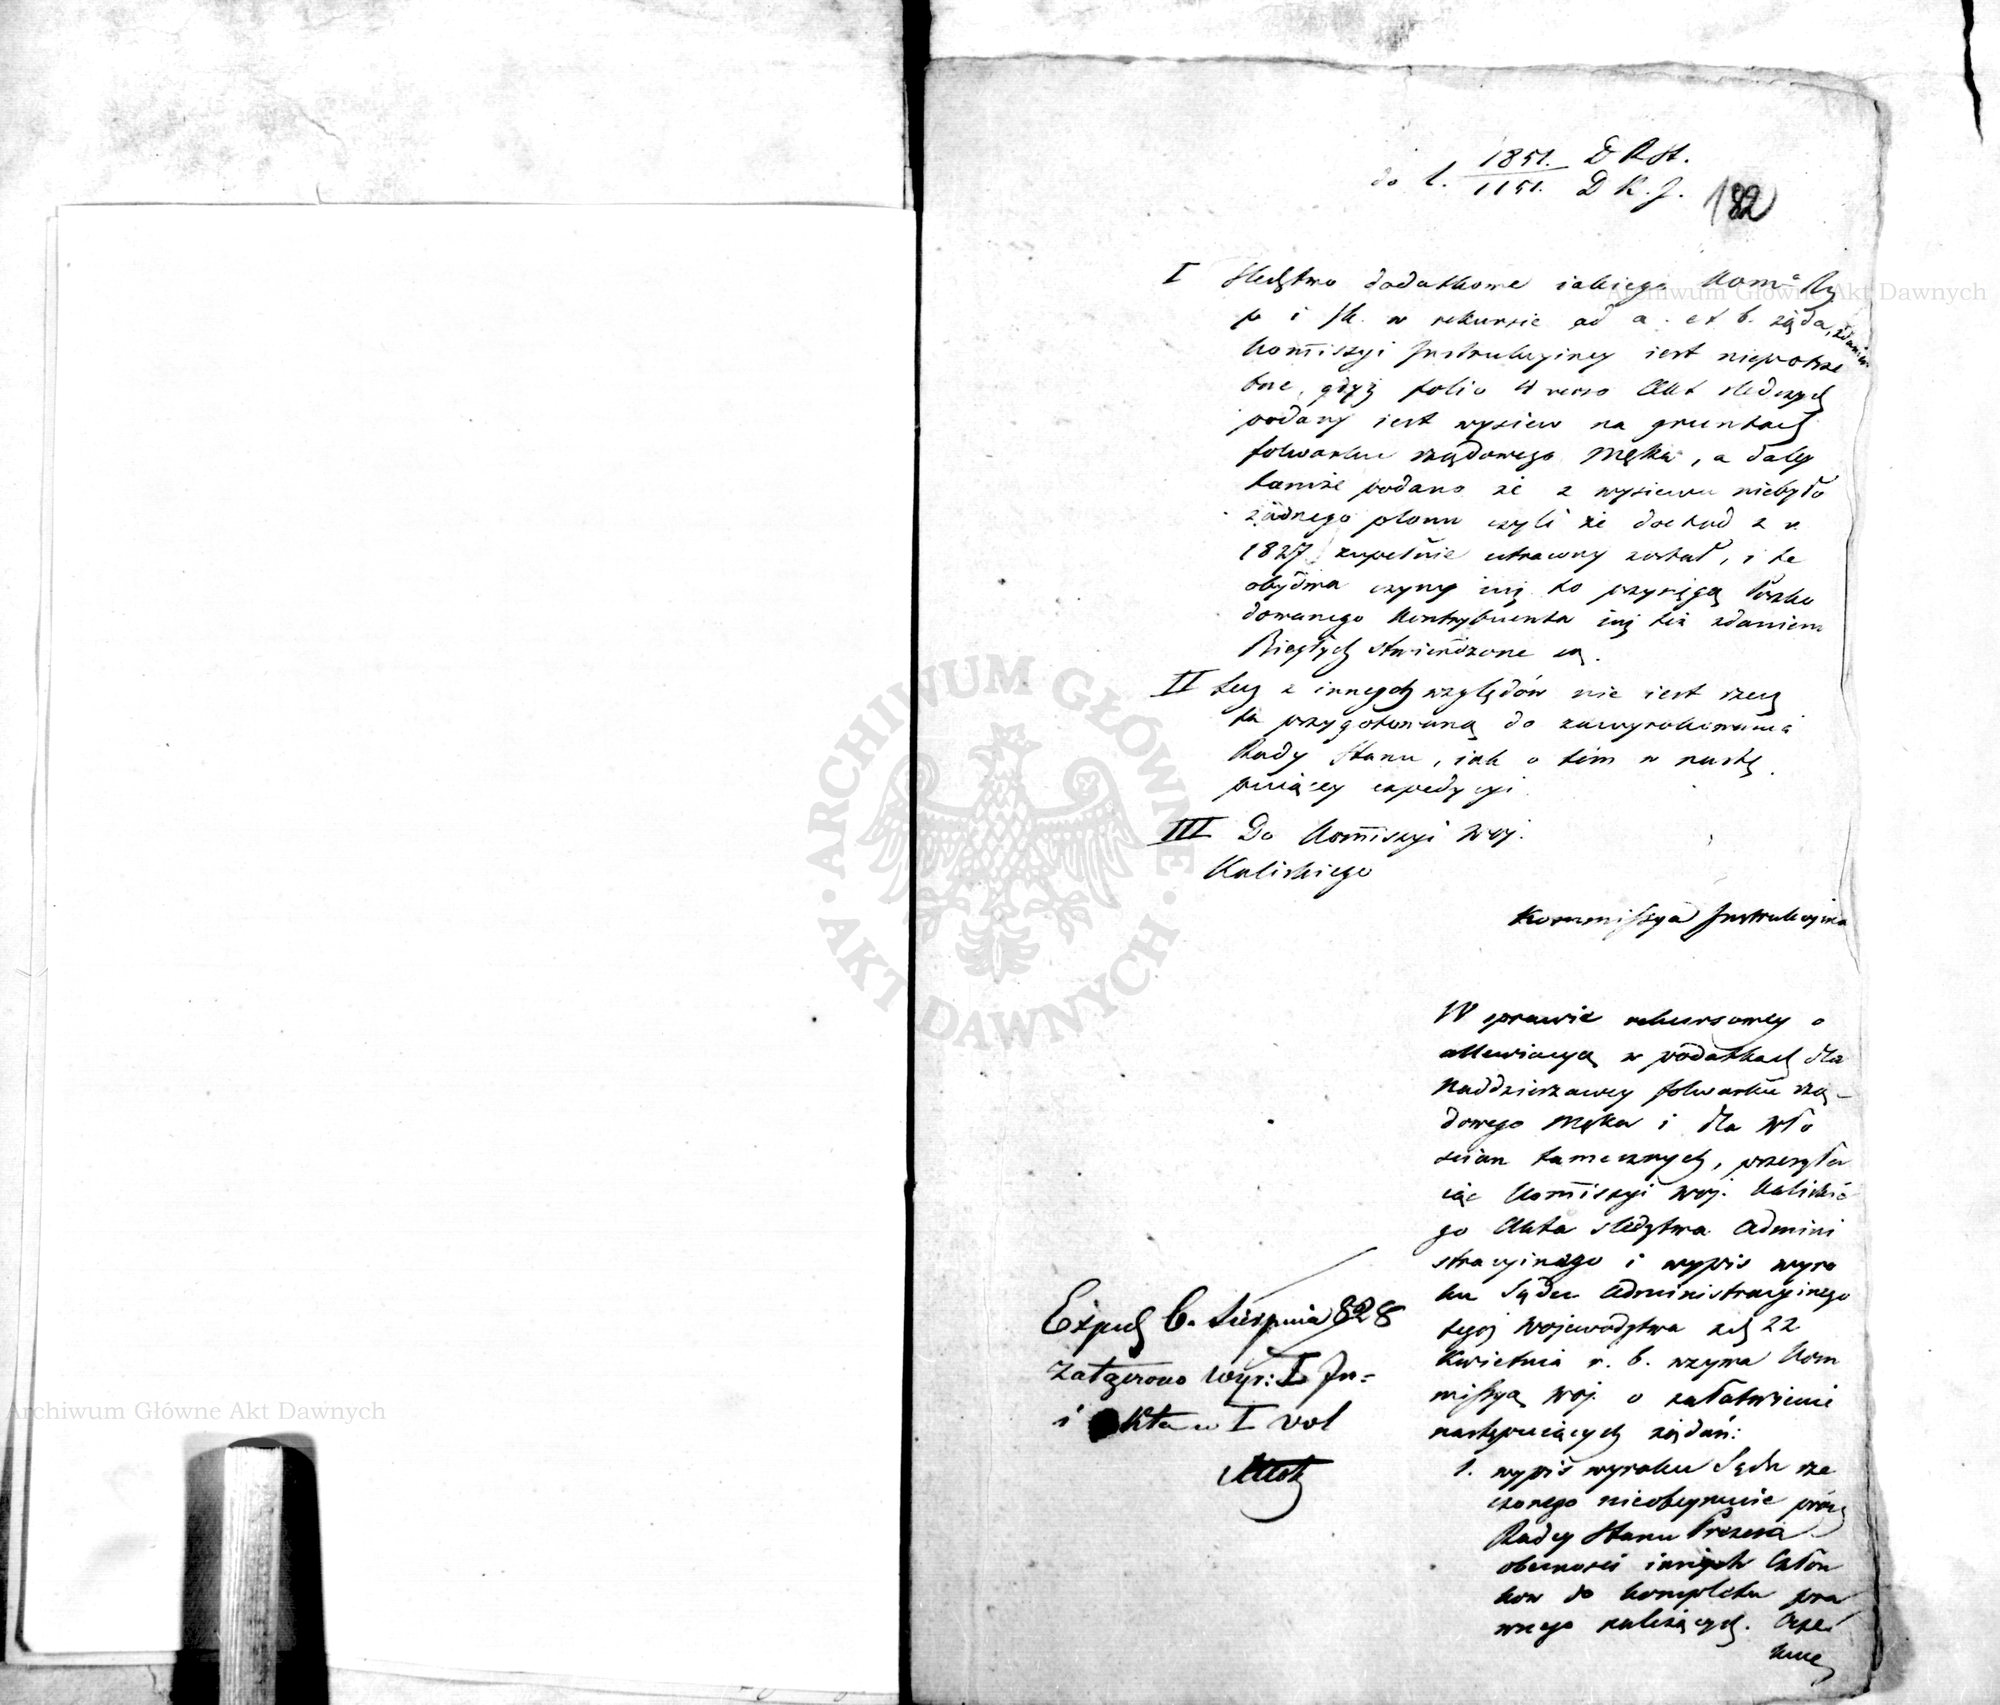 do l. 1851. D R St.
1151. D K. J.
182
I Sledztwo dodatkowe iakiego Komᵃ Rz
p i sk. w rekursie ad a. et b. żąda, zdaniem
Kom̄iszyi Instrukcyiney iest niepotrze
bne, gdyż folio 4 verso Akt sledczych
podany iest wysiew na gruntach
folwarku rządowego Męka, a daley
tamże podano że z wysiewu niebyło
żadnego plonu czyli że dochod z r.
1827 zupełnie utracony został, i te
obydwa czyny iuż to przysięgą Poszko
dowanego Kontrybuenta iuż też zdaniem
Biegłych stwierdzone są.
II Lecz z innych względów nie iest rzecz
ta przygotowaną do zawyrokowania
Rady Stanu, iak o tem w nastę
puiącey expedycyi.
III Do Kom̄iszyi Woj.
Kaliskiego
Kommissya Instrukcyina
W sprawie rekursowey o
allewiacyą w podatkach dla
Naddzierżawcy folwarku rzą-
dowego Męka i dla Wło
scian tamecznych, przesyła
iąc Kom̄iszyi Woj. Kaliskie
go Akta sledztwa Admini
stracyinego i wypis wyro
ku Sądu Administracyinego
tegoż Województwa z d. 22
Kwietnia r. b. wzywa Kom
missyą Woj. o załatwienie
następuiących żądań:
1. wypis wyroku Sądu rze
czonego nieobeymuie prócz
Radcy Stanu Prezesa
obecności innych Człon
kow do kompletu pra
wnego należących.
Expedᵗ 6. Sierpnia 828
Załączono Wyr: I In=
i Akta w I vol